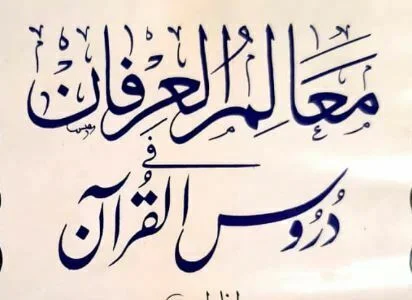 مَعَالِمُ الْعِرْفَان
فی
دُرُوسُ الْقُرْآن